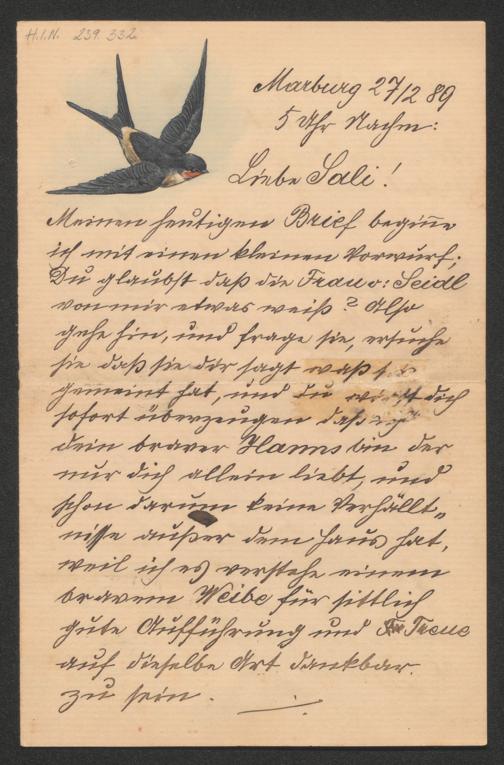 H.I.N. 239.332
Marburg 27/2 89
5 Uhr Nachm:
Liebe Sali!
Meinen heutigen Brief begin̄e
ich mit einen kleinen Vorwurf;
Du glaubst daß die Frau v: Seidl
von mir etwas weiß? Also
gehe hin, und frage sie, ersuche
sie daß sie dir sagt waß sie
gemeint hat, und du wirst dich
sofort überzeugen daß ich
dein braver Hanns bin der
nur dich allein liebt, und
schon darum keine Verhällt„
nisse außer dem Haus hat,
weil ich es verstehe einem
bravem Weibe für sittlich
gute Aufführung und Treue
auf dieselbe Art dankbar
zu sein.